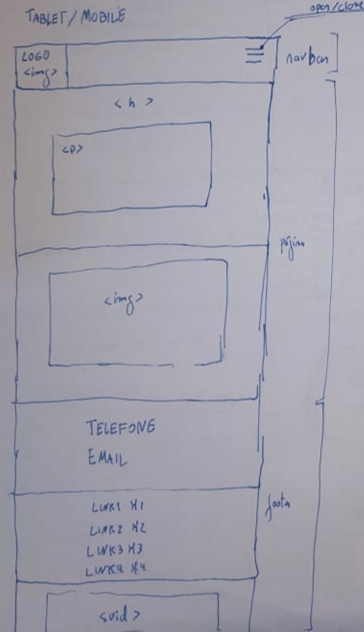 TABLET / MOBILE
open/close
LOGO
<img>
navbar
<h>
<p>
página
<img>
TELEFONE
EMAIL
LINK1 X1
LINK2 X2
LINK3 X3
LINK4 X4
footer
<vid>